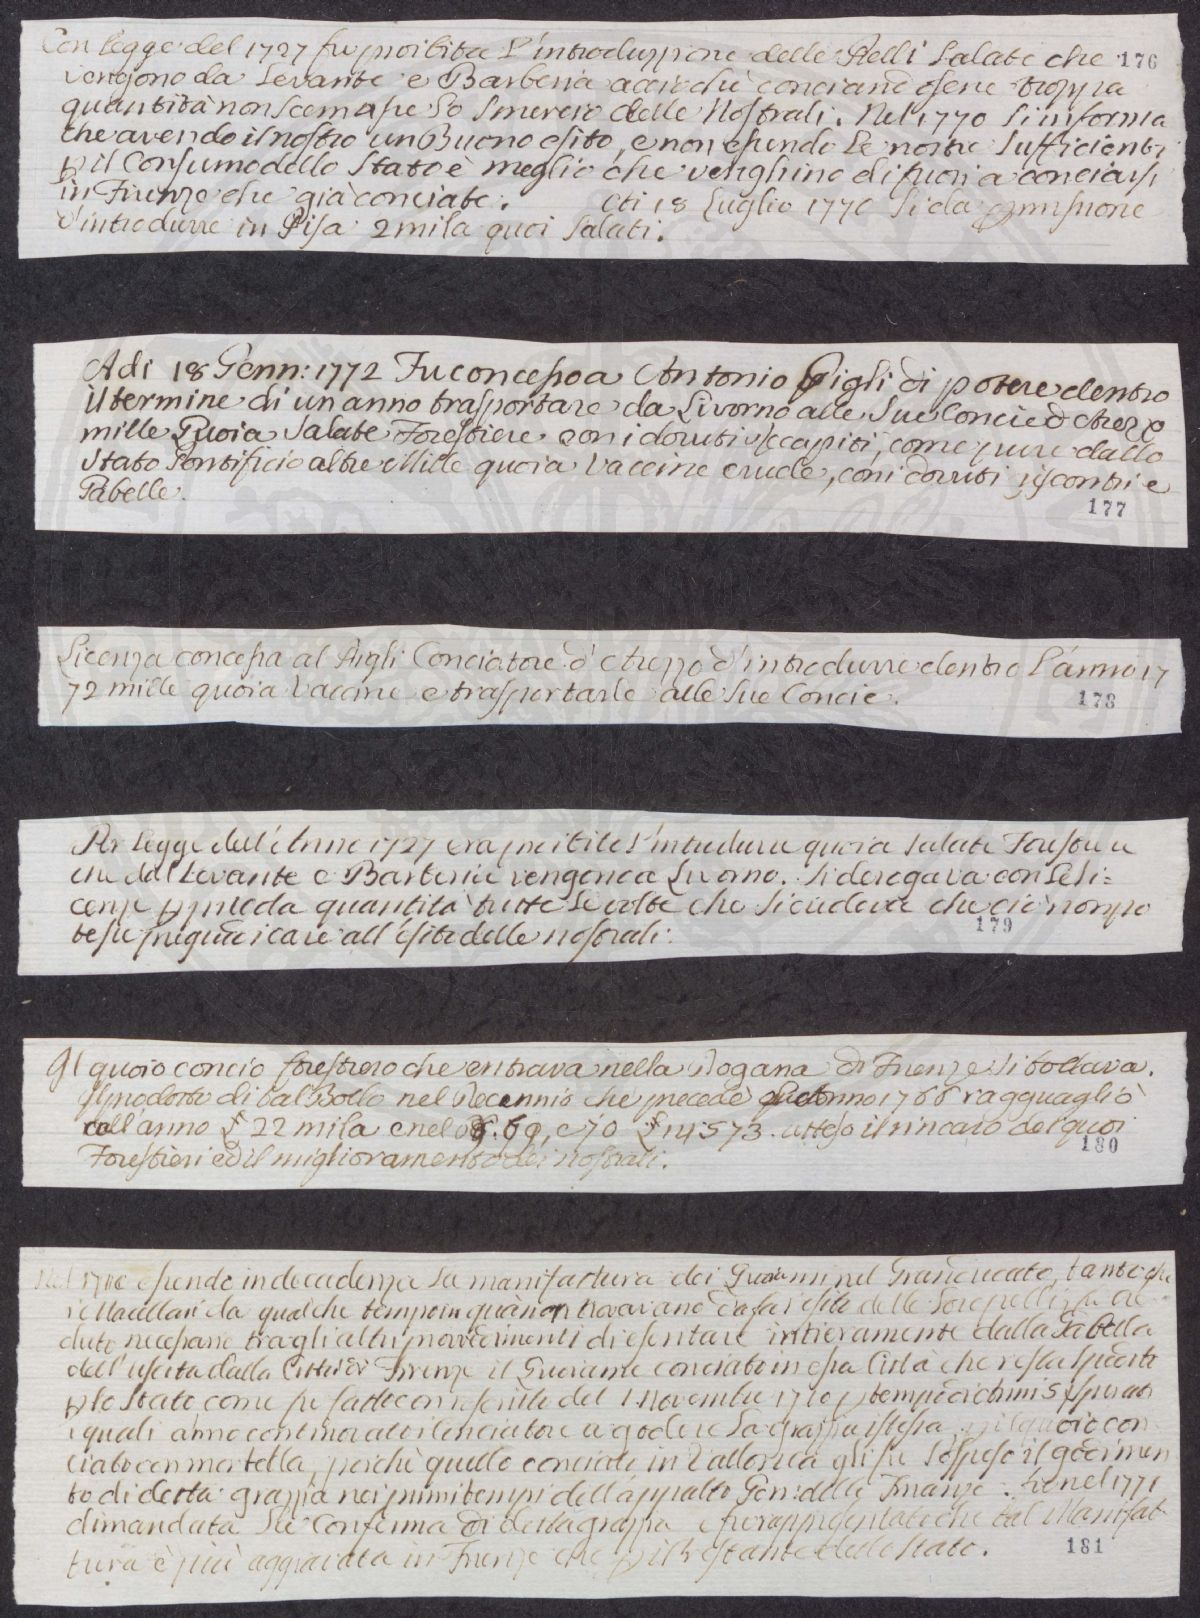 Con legge del 1727 fu proibita l'introduzzione delle Pelli Salate che 176
vengono da Levante e Barberia acciochè conciandosene troppa
quantità non scemasse lo smercio delle Nostrali. Nel 1770 Si informa
che avendo il nostro un Buono esito, e non essendo le nostre Sufficienti
p il Consumo dello Stato è meglio che venghino di fuori a conciarsi
in Firenze che già conciate. Ai 18 Luglio 1770 Si da pmissione
d'introdurre in Pisa 2 mila quoi Salati.
Adi 18 Genn: 1772 Fu concesso a Antonio Gigli di potere dentro
il termine di un anno trasportare da Livorno alle Sue Concie d'Arezzo
mille Quoia Salate Forestiere con i dovuti recapiti, come pure dallo
Stato Pontificio altre Mille quoia Vaccine crude, con i dovuti riscontri e
Gabelle.
177
Licenza concessa al Gigli Conciatore d'Arezzo d'introdurre dentro l'anno 17
72 mille quoia Vaccine e trasportarle alle Sue Concie.
178
Per Legge dell'Anno 1727 era proibito l'introdurre quoia Salate Forestiere
che dal Levante e Barberia vengono a Livorno. Si derogava con le li=
cenze p pmeda quantità tutte le volte che Si credeva che ciò non po
tesse pregiudicare all'esito delle nostrali.
179
Il quoio concio forestiero che entrava nella Dogana di Firenze Si bollava.
Il prodotto di tal Bollo nel Decennio che precedè l'anno 1766 ragguagliò
all'anno £ 22 mila e nel 68. 69, e 70 £ 14573. atteso il rincaro dei quoi
Forestieri ed il miglioramento dei nostrali.
180
Nel 1710 essendo in decadenza la manifattura dei Quoiami nel Granducato, tanto che
i Macellari da qualche tempo in qua non trovavano da far esito delle loro pelli, fu cre
duto necessario tra gli altri provvedimenti di esentare intieramente dalla Gabella
dell'uscita dalla Città di Firenze il Quoiame conciato in essa Città che resta Spedito
p lo Stato come fu fatto con rescritto del 1 Novembre 1710 p tempo di anni 5 Spirati
i quali ànno continovato i Conciatori a godere la grazzia istessa p il quoio con
ciato con mortella, perchè quello conciato in Vallonea gli fu Sospeso il godimen
to di detta grazzia nei primi tempi dell'appalto Gen: delle Finanze. Fu nel 1771
dimandata la Conferma di detta grazzia e fu rappresentato che tal Manifat
tura è più aggravata in Firenze che p il Restante dello Stato.
181